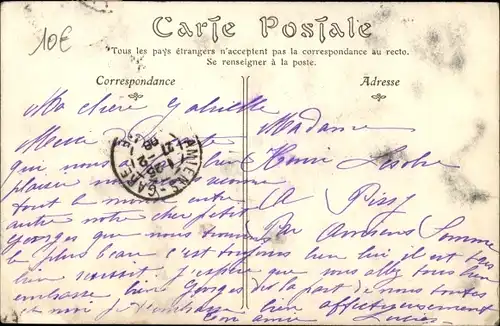 10€
Carte Postale
Tous les pays étrangers n'acceptent pas la correspondance au recto.
Se renseigner à la poste.
Correspondance
Adresse
Ma chère Gabrielle
Madame
Merci
Henri
qui nous bien
plaisir nous
A
tout le monde entre
autre notre cher petit
Par Amiens Somme
Georges que nous trouvons
le plus beau c'est toujours bien lui il est très
bien réussit. J'espère que vous allez tous bien
embrasse bien Georges de la part de nous toutes
et moi je t'embrasse bien affectueusement
Ton amie Lucie
AMIENS-GARE